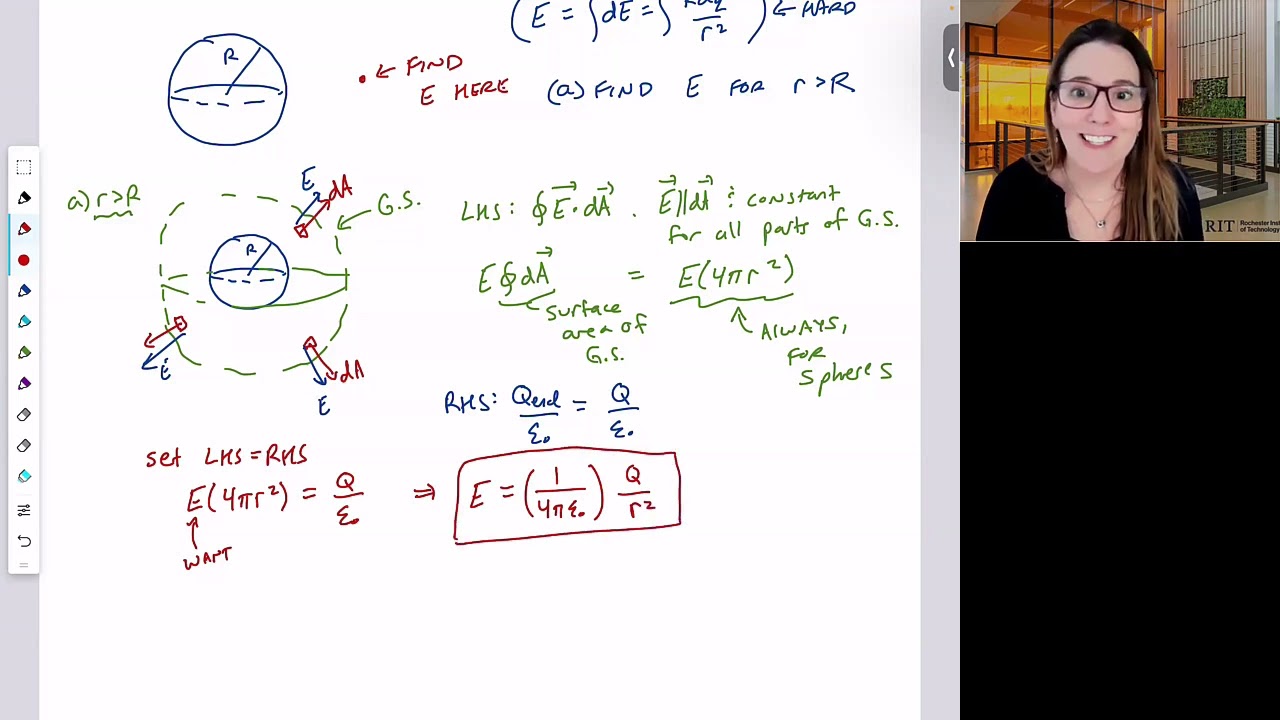 (E = ∫dE = ∫ kdq/r²) ← HARD
R
← FIND
E HERE
(a) FIND E FOR r>R
a) r>R
E dA
← G.S.
R
E
dA
E
LHS: ∮ E⃗ · dA⃗ . E⃗ || dA⃗ : constant
for all parts of G.S.
E ∮ dA⃗ = E(4πr²)
surface
area of
G.S.
ALWAYS,
FOR
spheres
RHS: Qencl/ε₀ = Q/ε₀
set LHS = RHS
E(4πr²) = Q/ε₀ ⇒ E = (1/4πε₀) Q/r²
WANT
RIT | Rochester Inst
of Technology